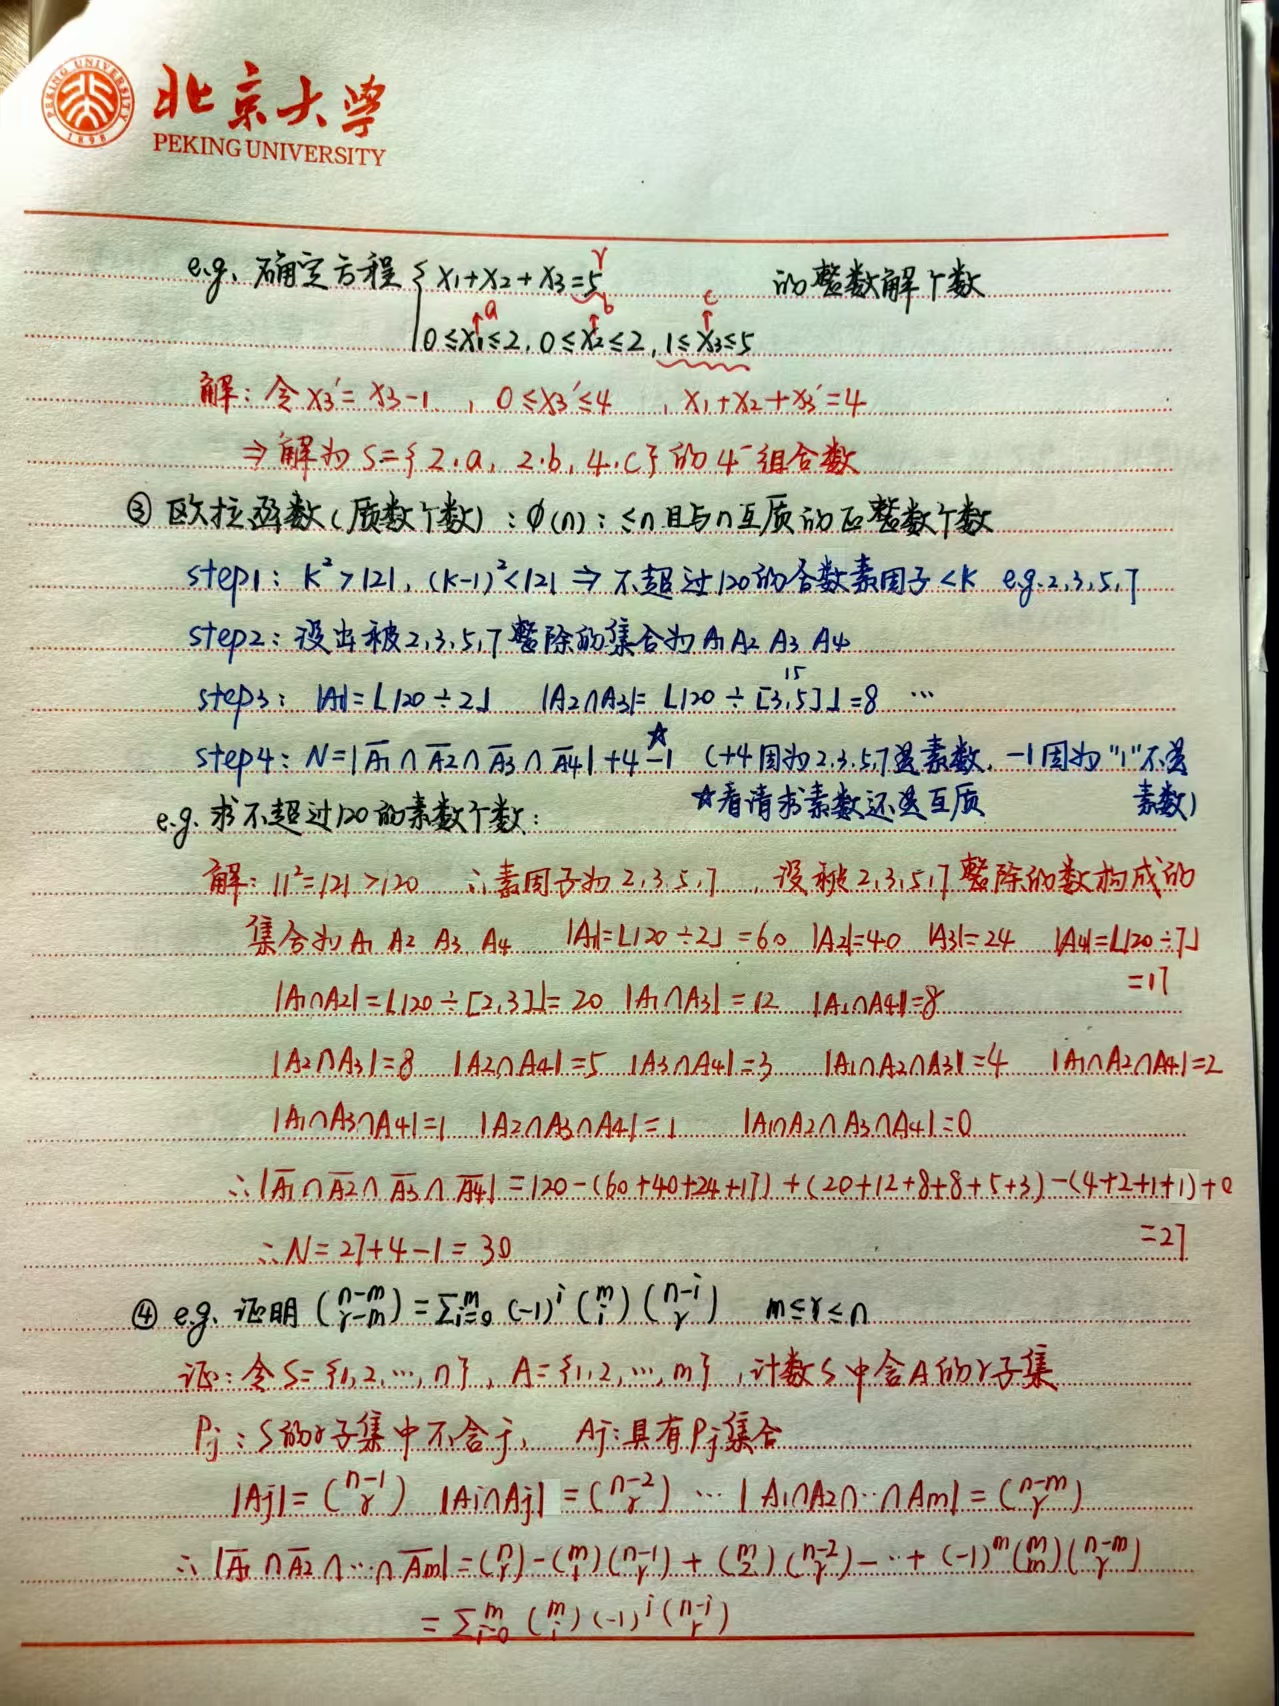 PEKING UNIVERSITY
1898
北京大学
PEKING UNIVERSITY
e.g. 确定方程 { x₁+x₂+x₃=5 的整数解个数
r
a b c
0≤x₁≤2, 0≤x₂≤2, 1≤x₃≤5
解: 令x₃'=x₃-1, 0≤x₃'≤4, x₁+x₂+x₃'=4
⇒解为S={2·a, 2·b, 4·c}的4-组合数
③ 欧拉函数(质数个数): φ(n): ≤n且与n互质的正整数个数
step1: K²>121, (K-1)²<121 ⇒ 不超过120的合数素因子<K e.g. 2,3,5,7
step2: 设出被2,3,5,7整除的集合为A₁ A₂ A₃ A₄
step3: |A₁|=⌊120÷2⌋ |A₂∩A₃|=⌊120÷[3,5]⌋=8 ⋯
15
step4: N=|A̅₁∩A̅₂∩A̅₃∩A̅₄|+4-1 (+4因为2,3,5,7是素数, -1因为"1"不是素数)
☆
☆看清求素数还是互质
e.g. 求不超过120的素数个数:
解: 11²=121>120 ∴素因子为2,3,5,7, 设被2,3,5,7整除的数构成的
集合为A₁ A₂ A₃ A₄ |A₁|=⌊120÷2⌋=60 |A₂|=40 |A₃|=24 |A₄|=⌊120÷7⌋
=17
|A₁∩A₂|=⌊120÷[2,3]⌋=20 |A₁∩A₃|=12 |A₁∩A₄|=8
|A₂∩A₃|=8 |A₂∩A₄|=5 |A₃∩A₄|=3 |A₁∩A₂∩A₃|=4 |A₁∩A₂∩A₄|=2
|A₁∩A₃∩A₄|=1 |A₂∩A₃∩A₄|=1 |A₁∩A₂∩A₃∩A₄|=0
∴|A̅₁∩A̅₂∩A̅₃∩A̅₄|=120-(60+40+24+17)+(20+12+8+8+5+3)-(4+2+1+1)+0
=27
∴N=27+4-1=30
④ e.g. 证明 (n-m r-m)=Σᵢ₌₀ᵐ(-1)ⁱ(m i)(n-i r) m≤r≤n
证: 令S={1,2,⋯,n}, A={1,2,⋯,m}, 计数S中含A的r子集
Pj: S的r子集中不含j, Aj: 具有Pj集合
|Aj|=(n-1 r) |Ai∩Aj|=(n-2 r) ⋯ |A₁∩A₂∩⋯∩Am|=(n-m r)
∴|A̅₁∩A̅₂∩⋯∩A̅m|=(n r)-(m 1)(n-1 r)+(m 2)(n-2 r)-⋯+(-1)ᵐ(m m)(n-m r)
=Σᵢ₌₀ᵐ(m i)(-1)ⁱ(n-i r)